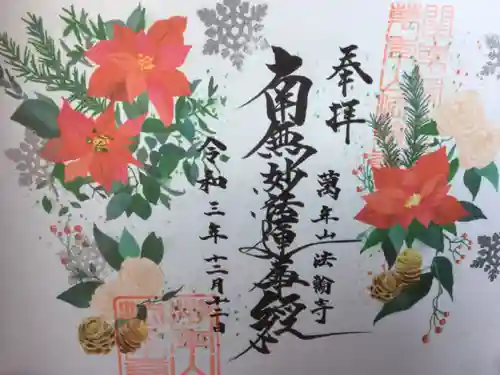 奉拝
萬年山 法翰寺
南無妙法蓮華経
令和三年 十二月十二日